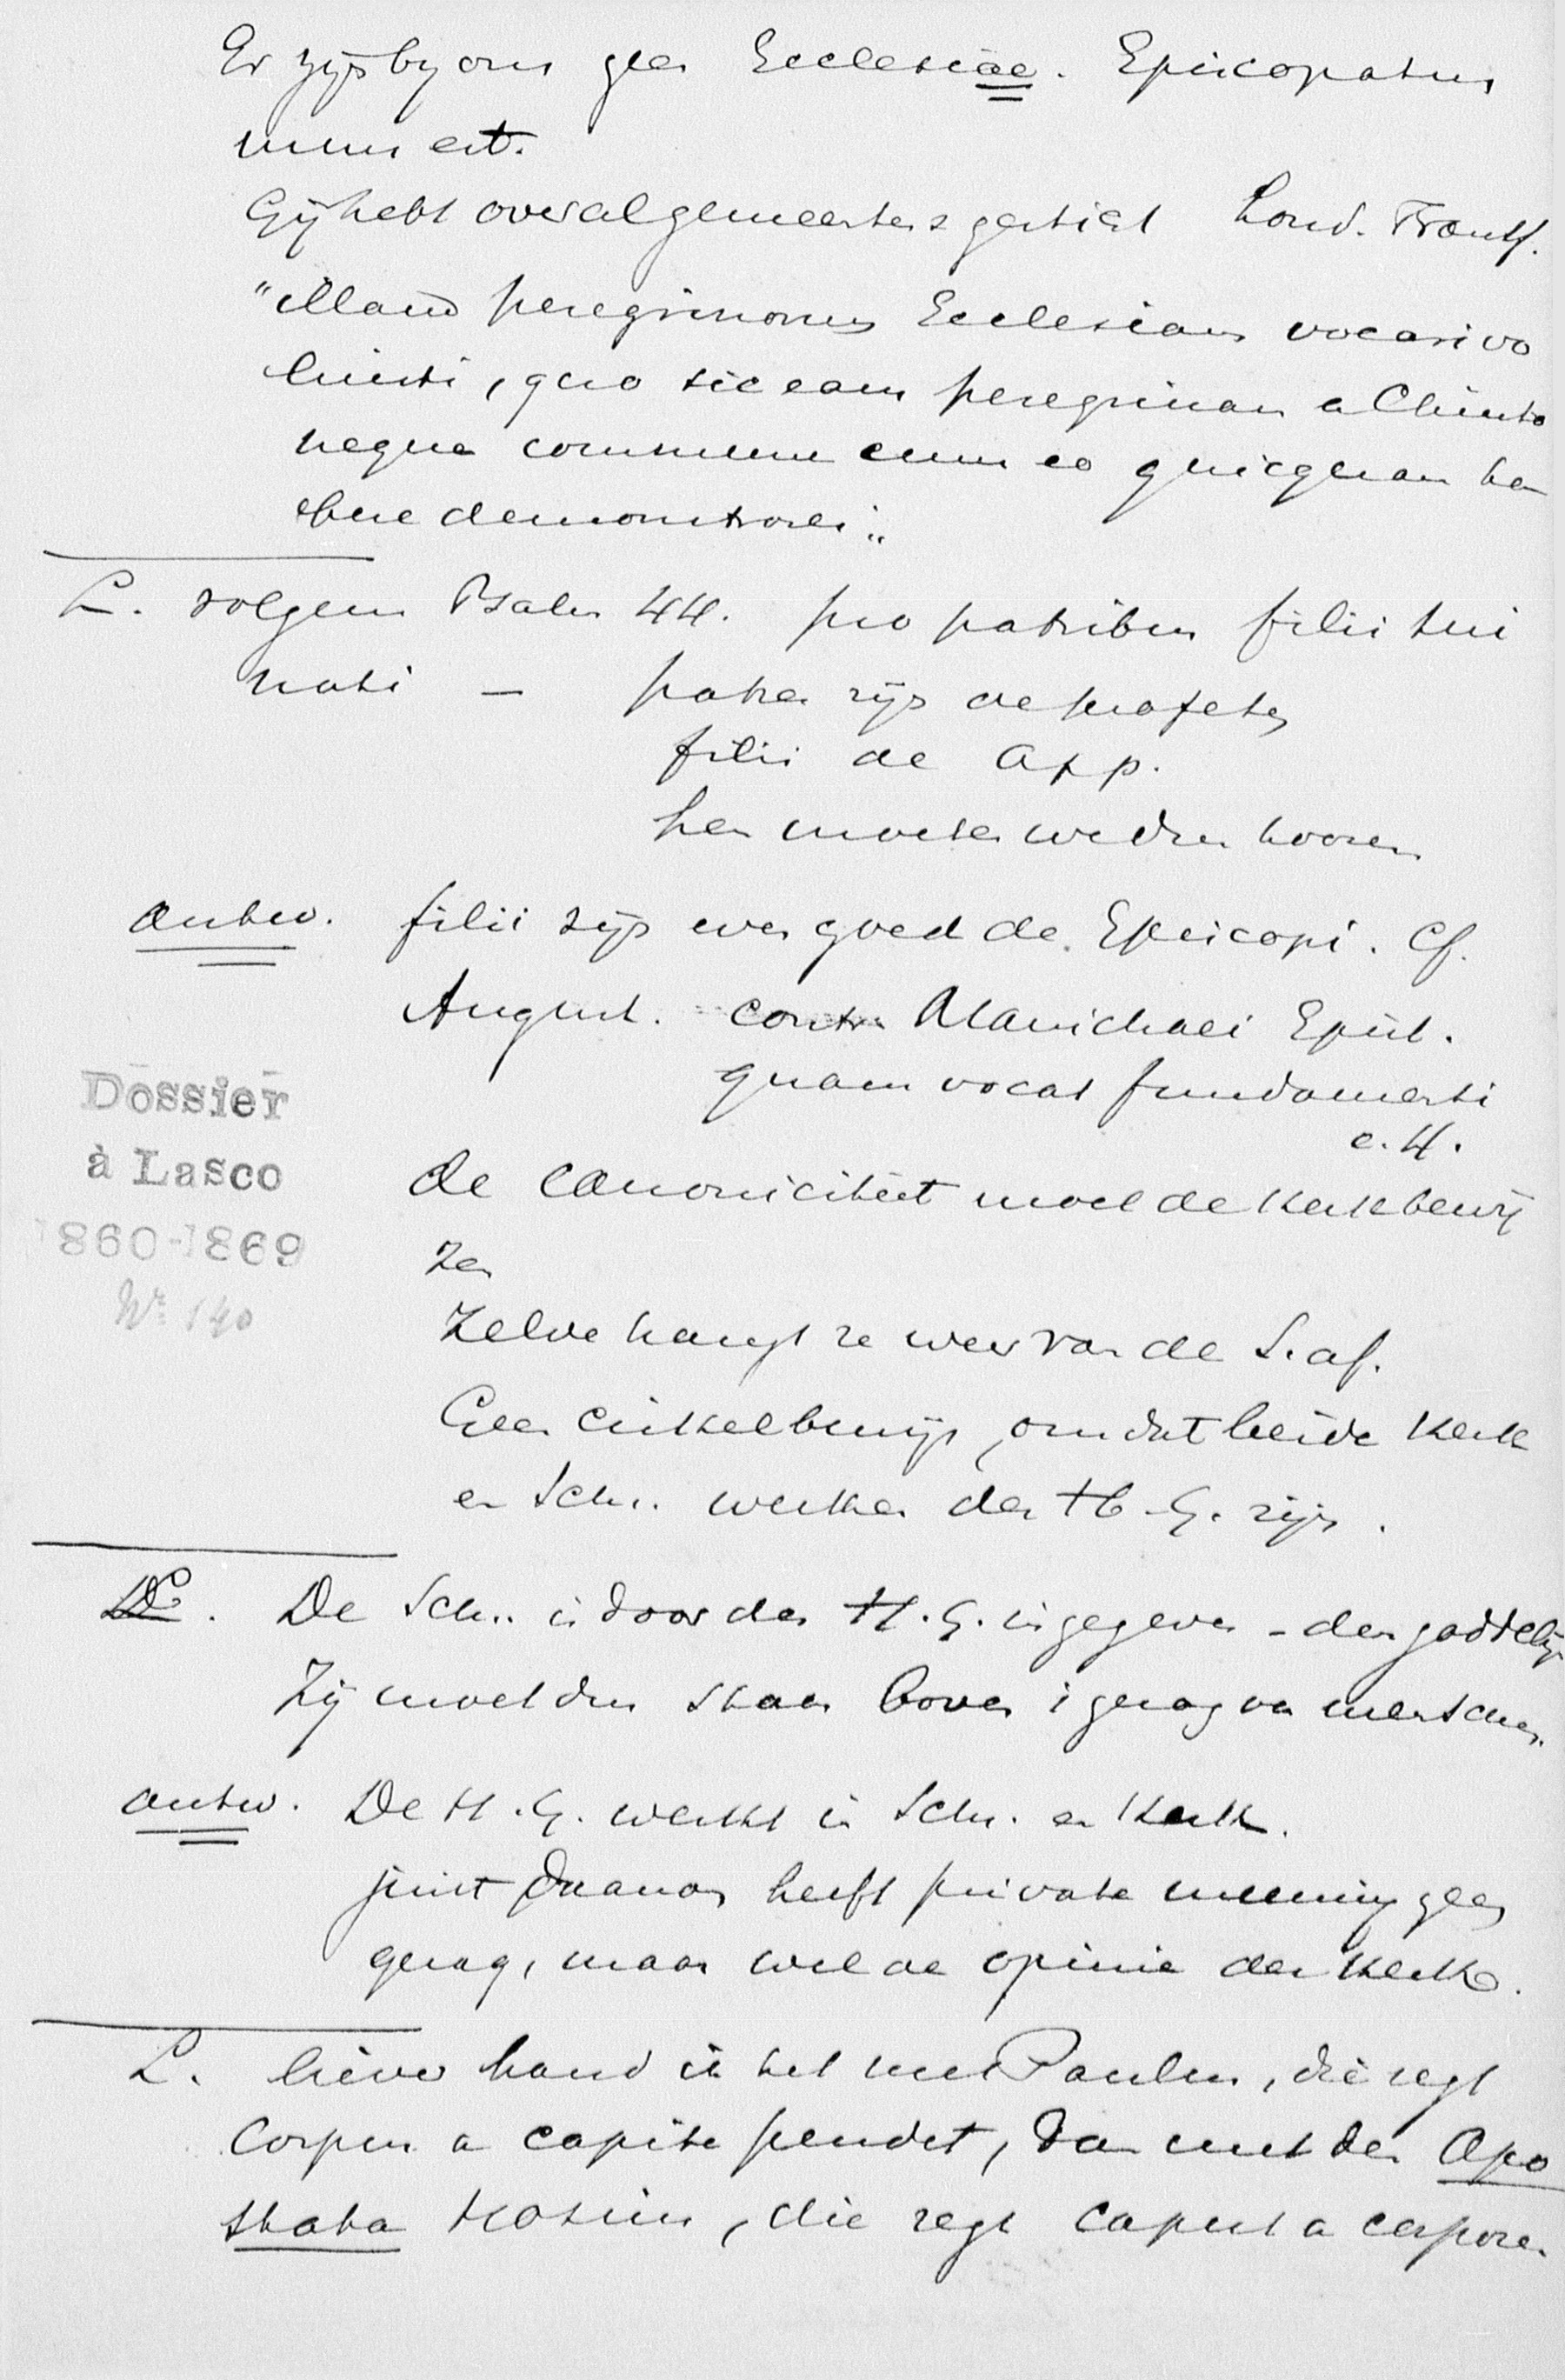 Er zijn by ons geen Ecclesiae. Episcopatus
unus est.
Gij hebt overal gemeentens gesticht Lond. Frankf.
"illam peregrinorum Ecclesiam vocari vo
luisti, quo sic eam peregrinam a Christo
neque commune cum eo quicquam ha
bere demonstres".
L. volgens Psalm 44. pro patribus filii tui
nati — patres zijn de profeten
filii de App.
hen moeten we dus hooren
antw. filii zijn even goed de Episcopi. Cf.
August. contra Manichaei Epist.
quam vocat fundamenti
c. 4.
Dossier
à Lasco
1860-1869
Nr. 140
de canoniciteit moet de Kerk bewij
zen
Zelve hangt ze weer van de S. af.
Geen cirkelbewijs, omdat beide Kerk
en Schr. werken des H. G. zijn.
L. De Schr. is door den H. G. ingegeven - den goddelijken
Zij moet dus staan boven 't gezag van menschen.
antw. De H. G. werkt in Schr. en Kerk.
juist daarom heeft private meening geen
gezag, maar wel de opinie der Kerk.
L. liever houd ik het met Paulus, die zegt
Corpus a capite pendet, dan met den Apo
stata Hosius, die zegt caput a corpore